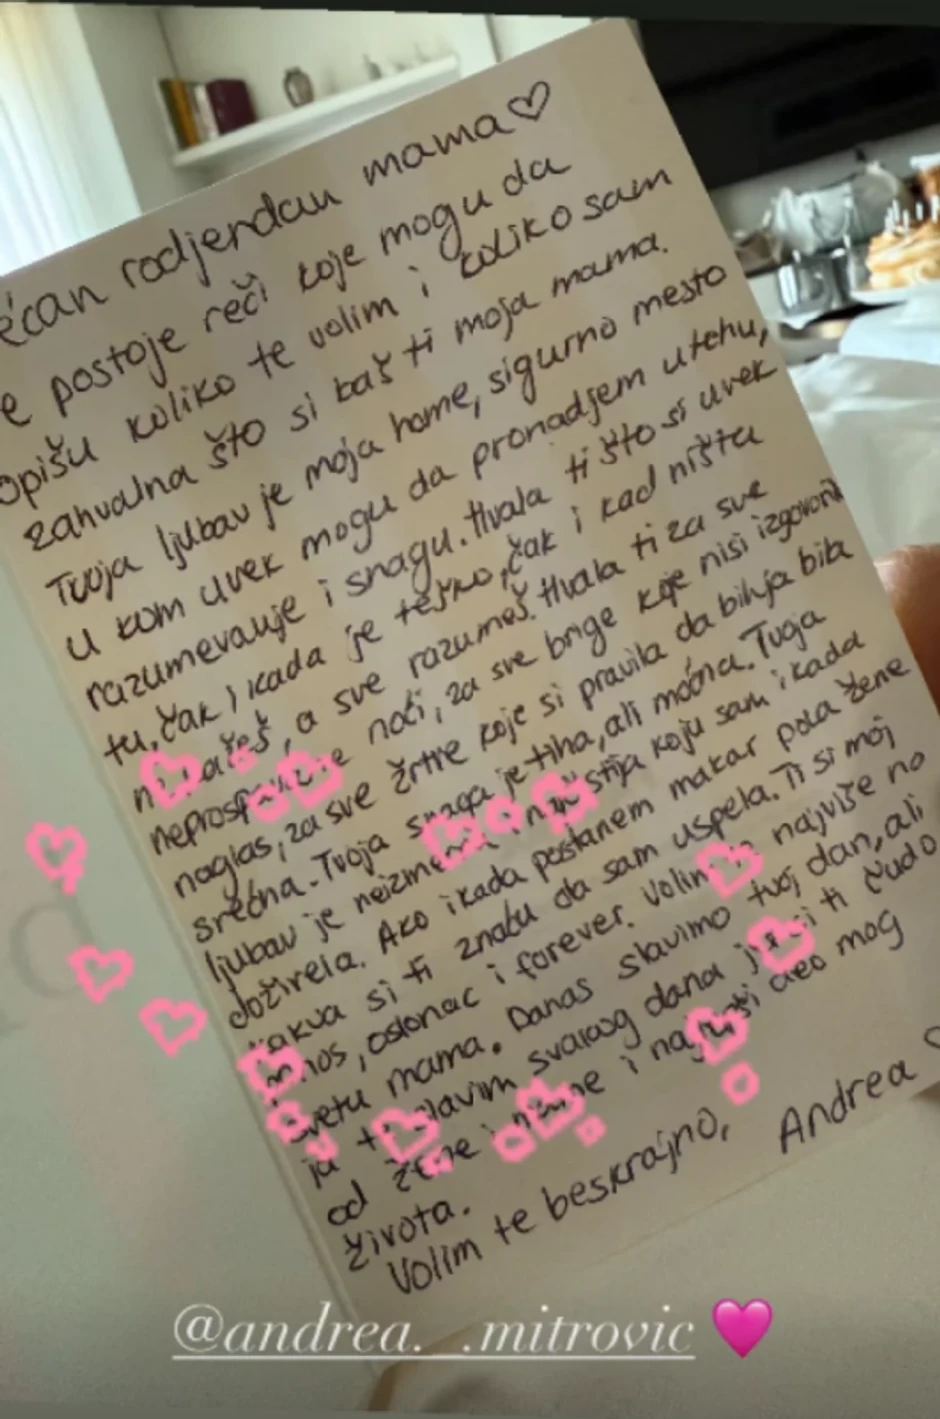 ećan rodjendan mama♡
e postoje reči koje mogu da
opišu koliko te volim i koliko sam
zahvalna što si baš ti moja mama.
Tvoja ljubav je moja home, sigurno mesto
u kom uvek mogu da pronadjem utehu,
razumevanje i snagu. Hvala ti što si uvek
tu, čak i kada je teško, čak i kad ništa
a sve razumeš. Hvala ti za sve
noći, za sve brige koje nisi izgovorila
naglas, za sve žrtve koje si pravila da bih ja bila
srećna. Tvoja snaga je tiha, ali moćna. Tvoja
ljubav je koju sam ikada
doživela. Ako ikada postanem makar pola žene
kakva si ti znaću da sam uspela. Ti si moj
ponos, oslonac i forever. Volim najviše na
svetu mama. Danas slavimo tvoj dan, ali
ja slavim svakog dana si ti čudo
od žene i i deo mog
života.
Volim te beskrajno, Andrea ♡
@andrea._.mitrovic 🩷